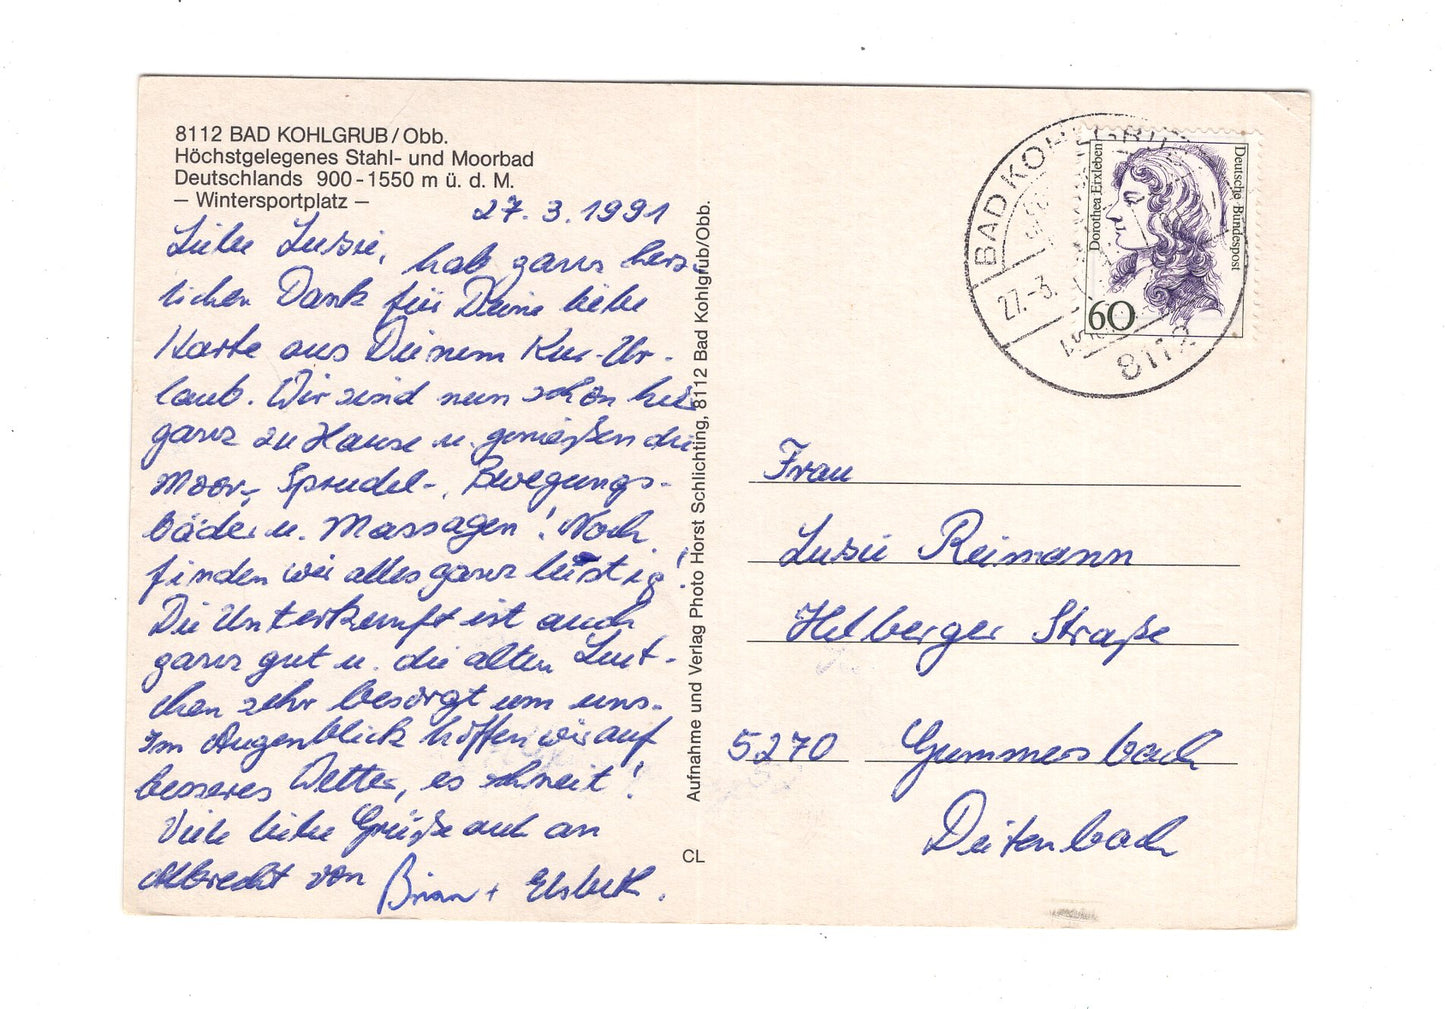 8112 BAD KOHLGRUB/Obb.
Höchstgelegenes Stahl- und Moorbad
Deutschlands 900-1550 m ü. d. M.
– Wintersportplatz –
27.3.1991
Liebe Lusie,
hab ganz herz-
lichen Dank für Deine liebe
Karte aus Deinem Kur-Ur-
laub. Wir sind nun schon hier
ganz zu Hause u. genießen die
Moor-, Sprudel-, Bewegungs-
bäder u. Massagen! Noch
finden wir alles ganz lustig!
Die Unterkunft ist auch
ganz gut u. die alten Leut-
chen sehr besorgt um uns.
Im Augenblick hoffen wir auf
besseres Wetter, es schneit!
Viele liebe Grüße auch an
Albrecht von Brian + Elsbeth.
Aufnahme und Verlag Photo Horst Schlichting, 8112 Bad Kohlgrub/Obb.
CL
BAD KOHLGRUB
27.-3.
8112
Dorothea Erxleben
Deutsche Bundespost
60
Frau
Lusie Reimann
Helberger Straße
5270 Gummersbach
Dietenbach